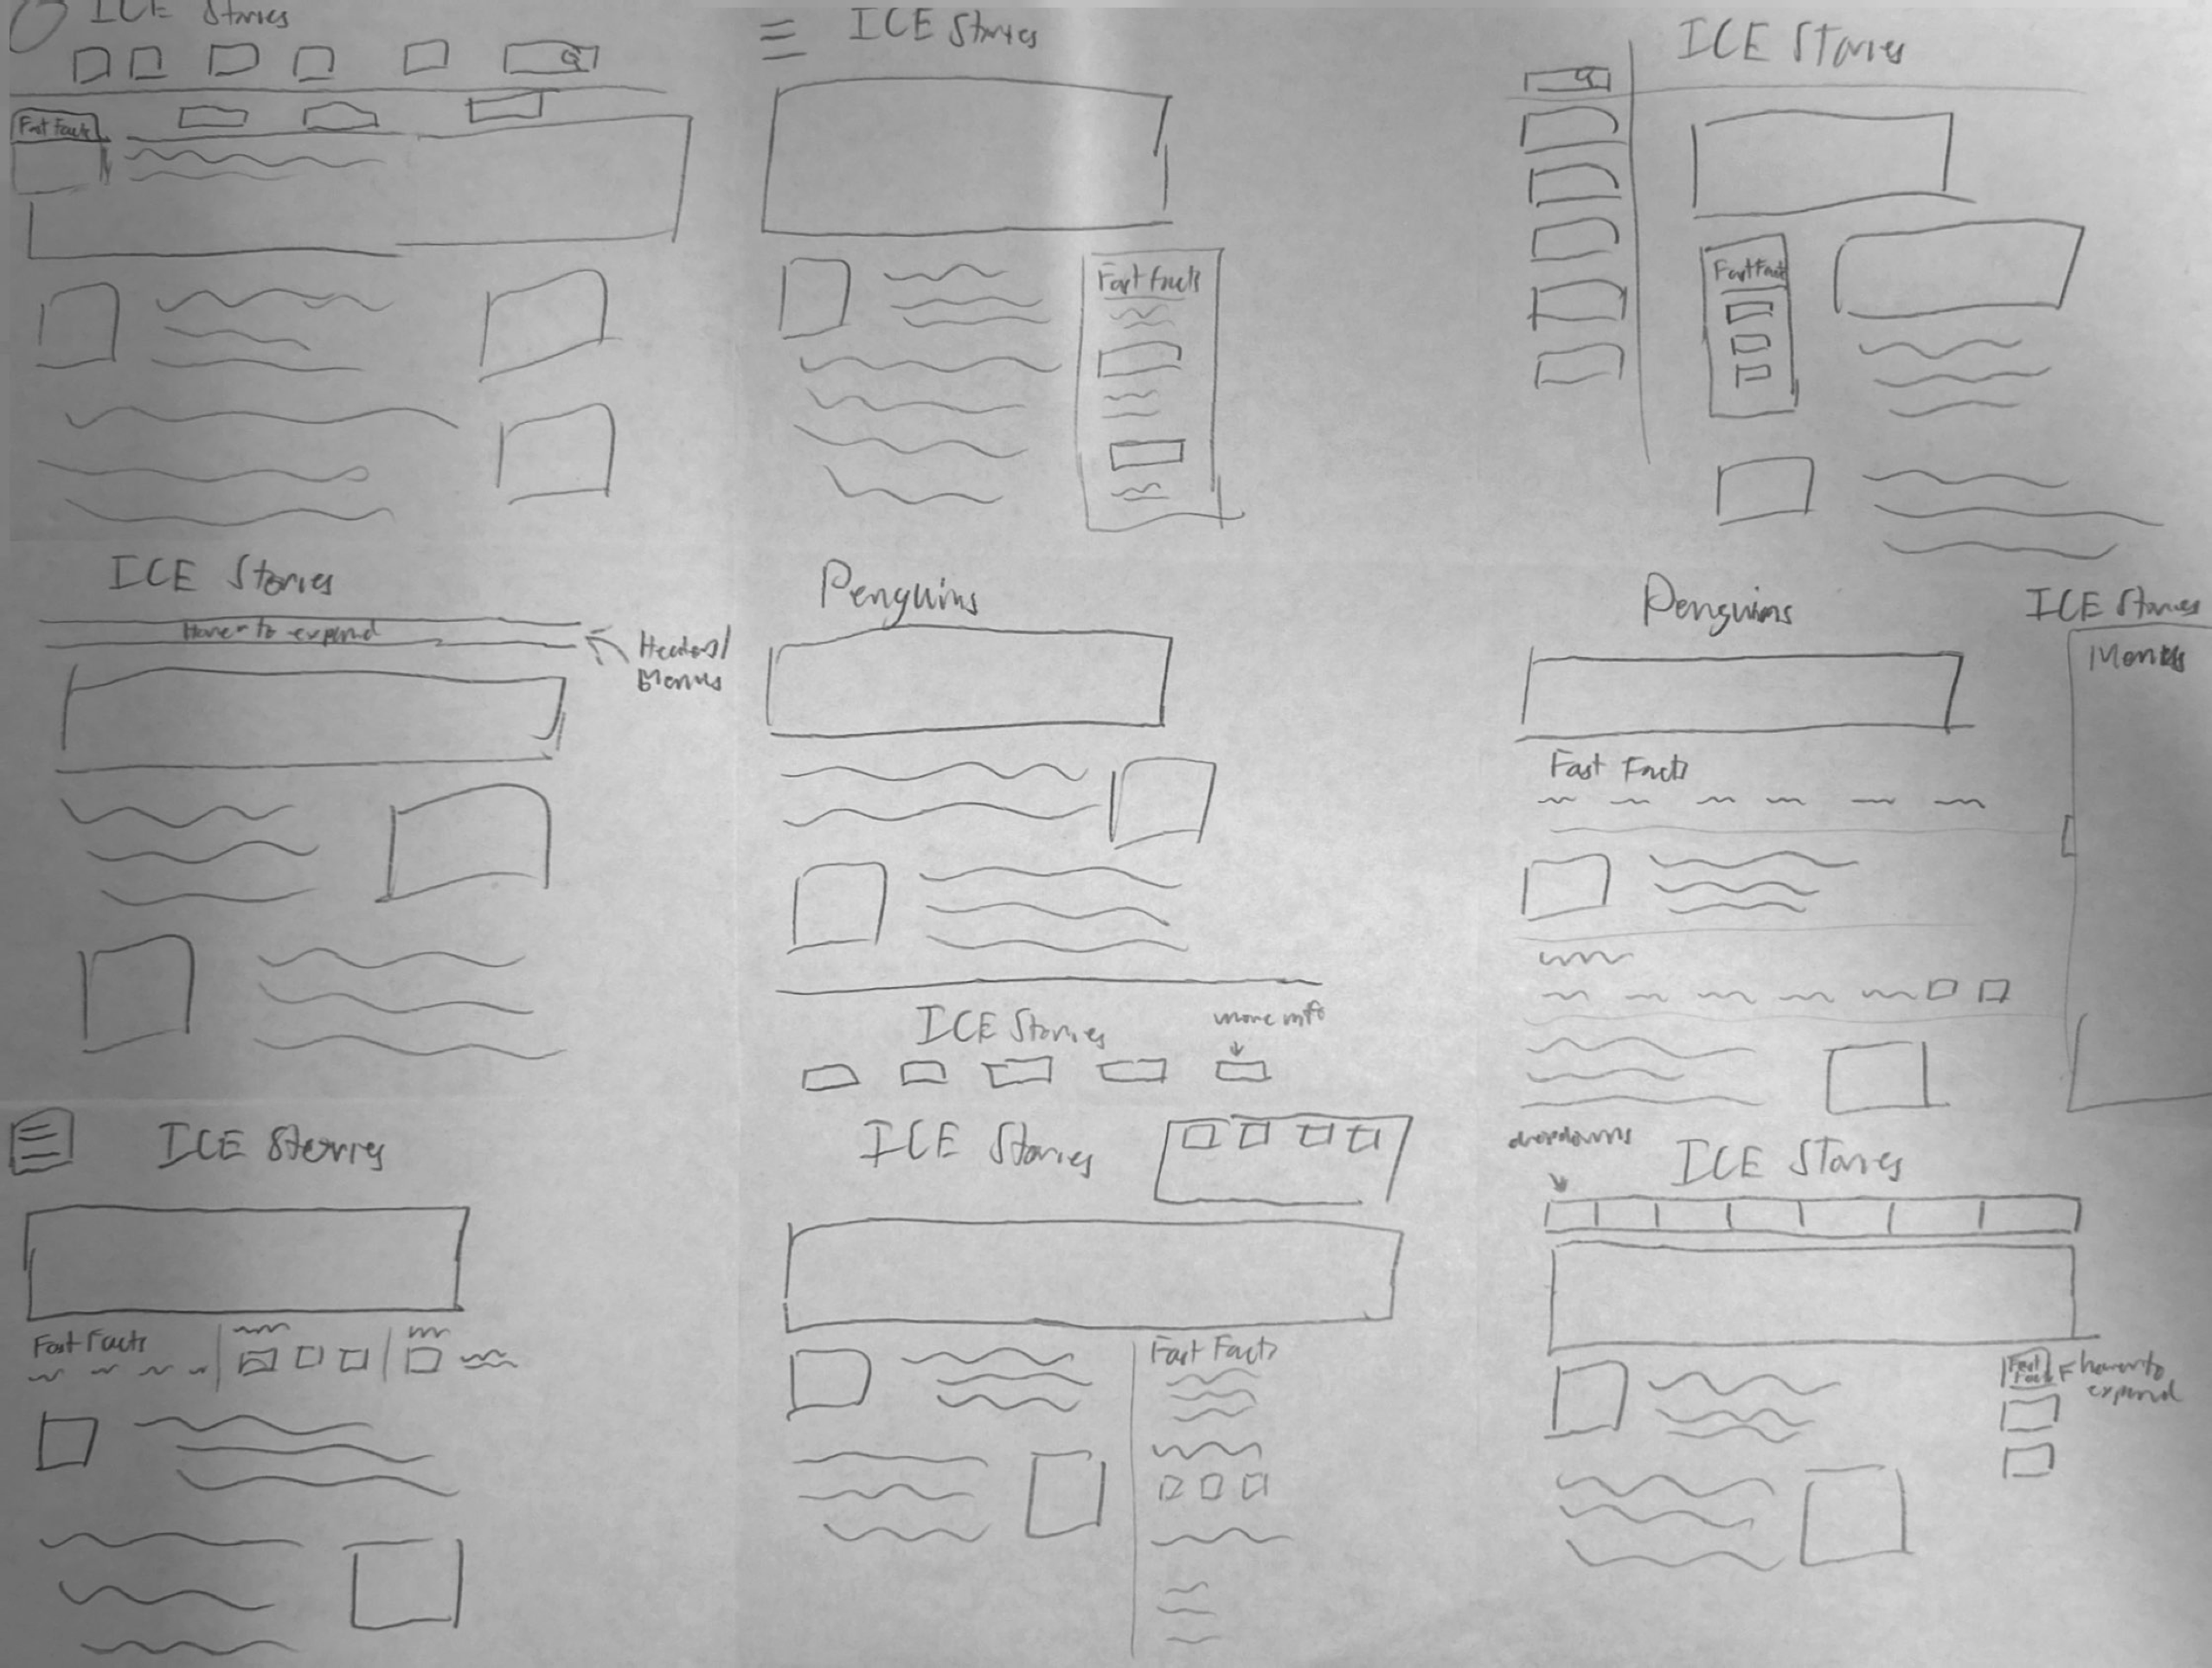 ICE Stories
Fast Facts
ICE Stories
Fast Facts
ICE Stories
Fast Facts
ICE Stories
Hover to expand
Headers/
Menus
Penguins
ICE Stories
more info
Penguins
ICE Stories
Menus
Fast Facts
ICE Stories
Fast Facts
ICE Stories
Fast Facts
dropdowns
ICE Stories
Fast
Facts
hover to
expand